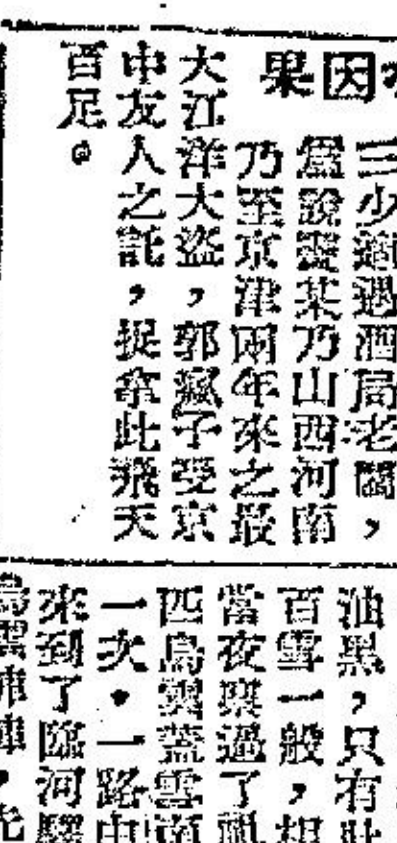 因果
三少適遇酒局老闆，
為說壹某乃山西河南
乃至京津兩年來之最
大江洋大盜，郭瘋子受京
中友人之託，捉拿此飛天
百足。
油黑，只有肚
百雪一般，想
當夜裏過了
匹烏雲蓋雪
一次。一路
來到了臨河驛